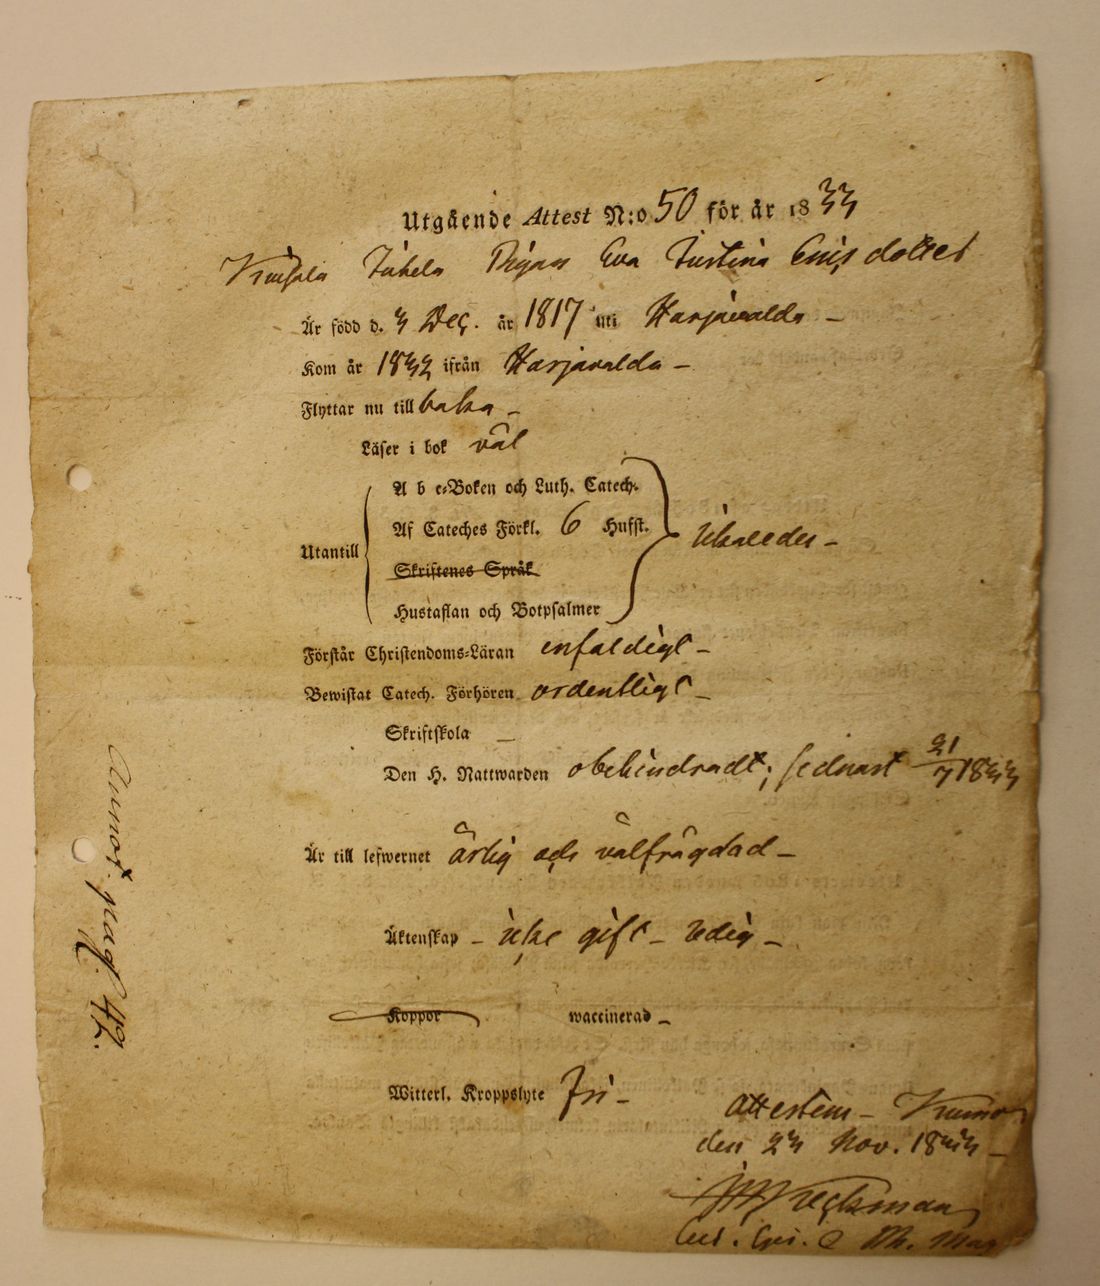 Utgående Attest N:o 50 för år 1833
Jubela Pigan Eva Justina Eriesdotter
Är född d. 3 Dec. år 1817 uti Harjavalda –
Kom år 1832 ifrån Harjavalda –
Flyttar nu till baka –
Läser i bok väl
A b c-Boken och Luth. Catech.
Af Cateches Förkl. 6 Hufst.
Utantill
Skriftenes Språk
Hustaflan och Botpsalmer
likaledes –
Förstår Christendoms-Läran enfaldigt –
Bewistat Catech. Förhören ordentligt –
Skriftskola –
Den H. Nattwarden obehindradt; sednast 21/7 1833
Är till lefwernet ärlig och välfrägdad –
Äktenskap – icke gift – ledig –
Koppor waccinerad –
Witterl. Kroppslyte Fri –
Attestem – Kumo
den 23 Nov. 1833 –
Annot. pag. 42.